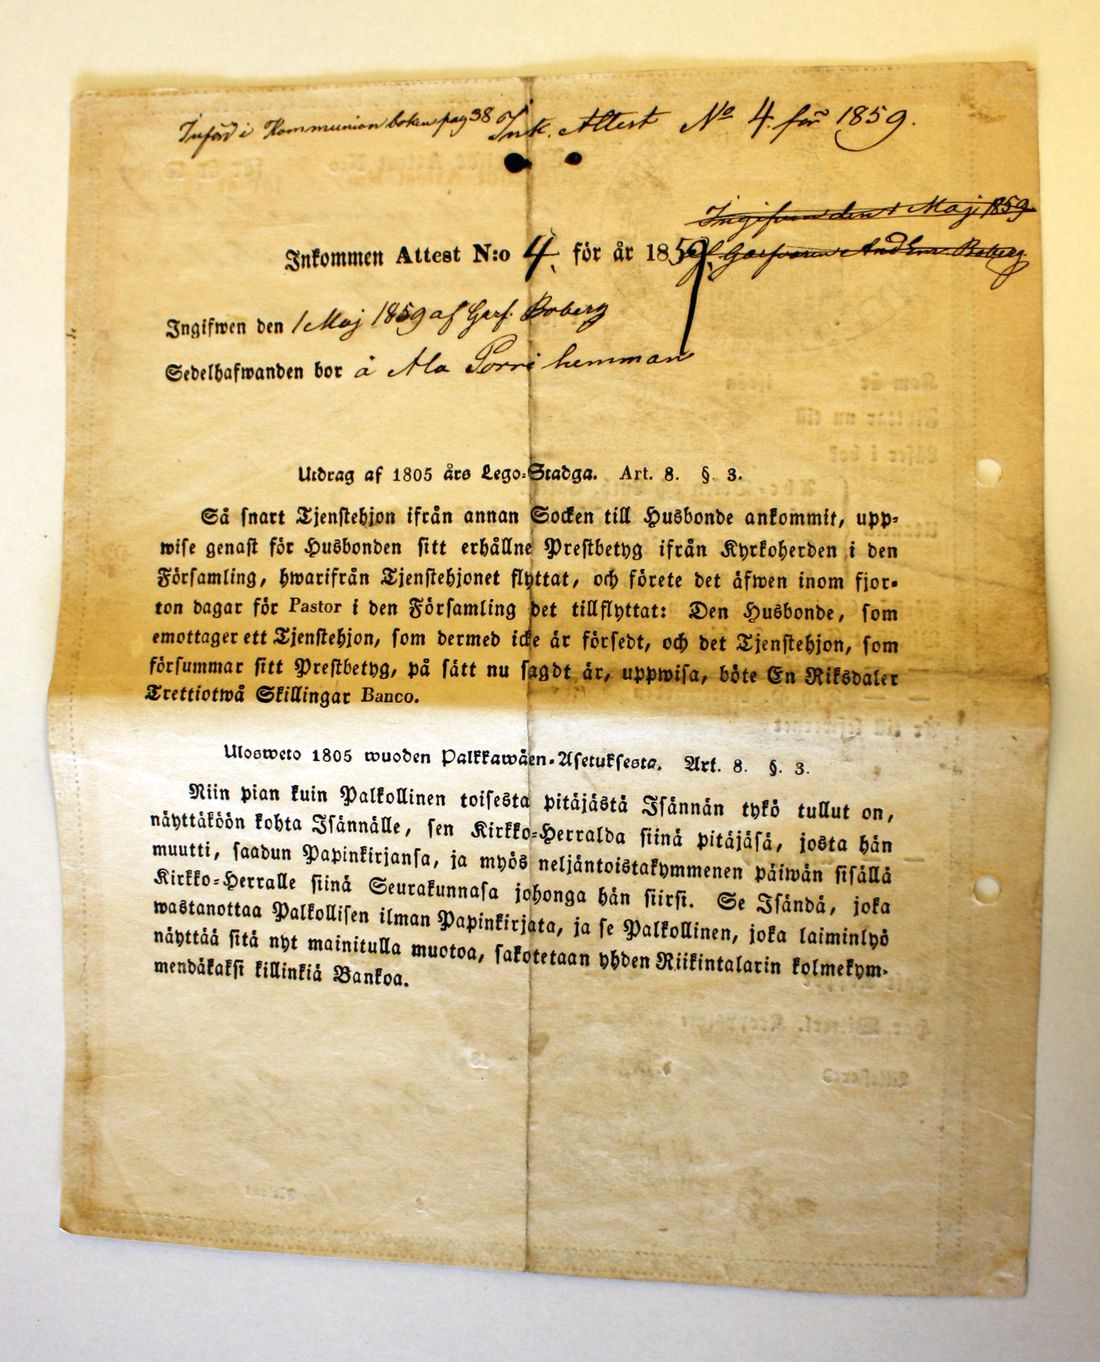 Införd i Kommunion boken pag 38 Ink. Attest No 4 för 1859.
Ingifven den 1 Maj 1859
af Garfvaren And Em. Boberg
Inkommen Attest N:o 4. för år 1859.
Ingifwen den 1 Maj 1859 af Garf. Boberg
Sedelhafwanden bor å Ala Porri hemman
Utdrag af 1805 års Lego-Stadga. Art. 8. § 3.
Så snart Tjenstehjon ifrån annan Socken till Husbonde ankommit, upp-
wise genast för Husbonden sitt erhållne Prestbetyg ifrån Kyrkoherden i den
Församling, hwarifrån Tjenstehjonet flyttat, och förete det äfwen inom fjor-
ton dagar för Pastor i den Församling det tillflyttat: Den Husbonde, som
emottager ett Tjenstehjon, som dermed icke är försedt, och det Tjenstehjon, som
försummar sitt Prestbetyg, på sätt nu sagdt är, uppwisa, böte En Riksdaler
Trettiotwå Skillingar Banco.
Ulosweto 1805 wuoden Palkkawäen-Asetuksesta. Art. 8. §. 3.
Niin pian kuin Palkollinen toisesta pitäjästä Isännän tykö tullut on,
näyttäköön kohta Isännälle, sen Kirkko-Herralda siinä pitäjäsä, josta hän
muutti, saadun Papinkirjansa, ja myös neljäntoistakymmenen päiwän sisällä
Kirkko-Herralle siinä Seurakunnasa johonga hän siirsi. Se Isändä, joka
wastanottaa Palkollisen ilman Papinkirjata, ja se Palkollinen, joka laiminlyö
näyttää sitä nyt mainitulla muotoa, sakotetaan yhden Riikintalarin kolmekym-
mendäkaksi killinkiä Bankoa.